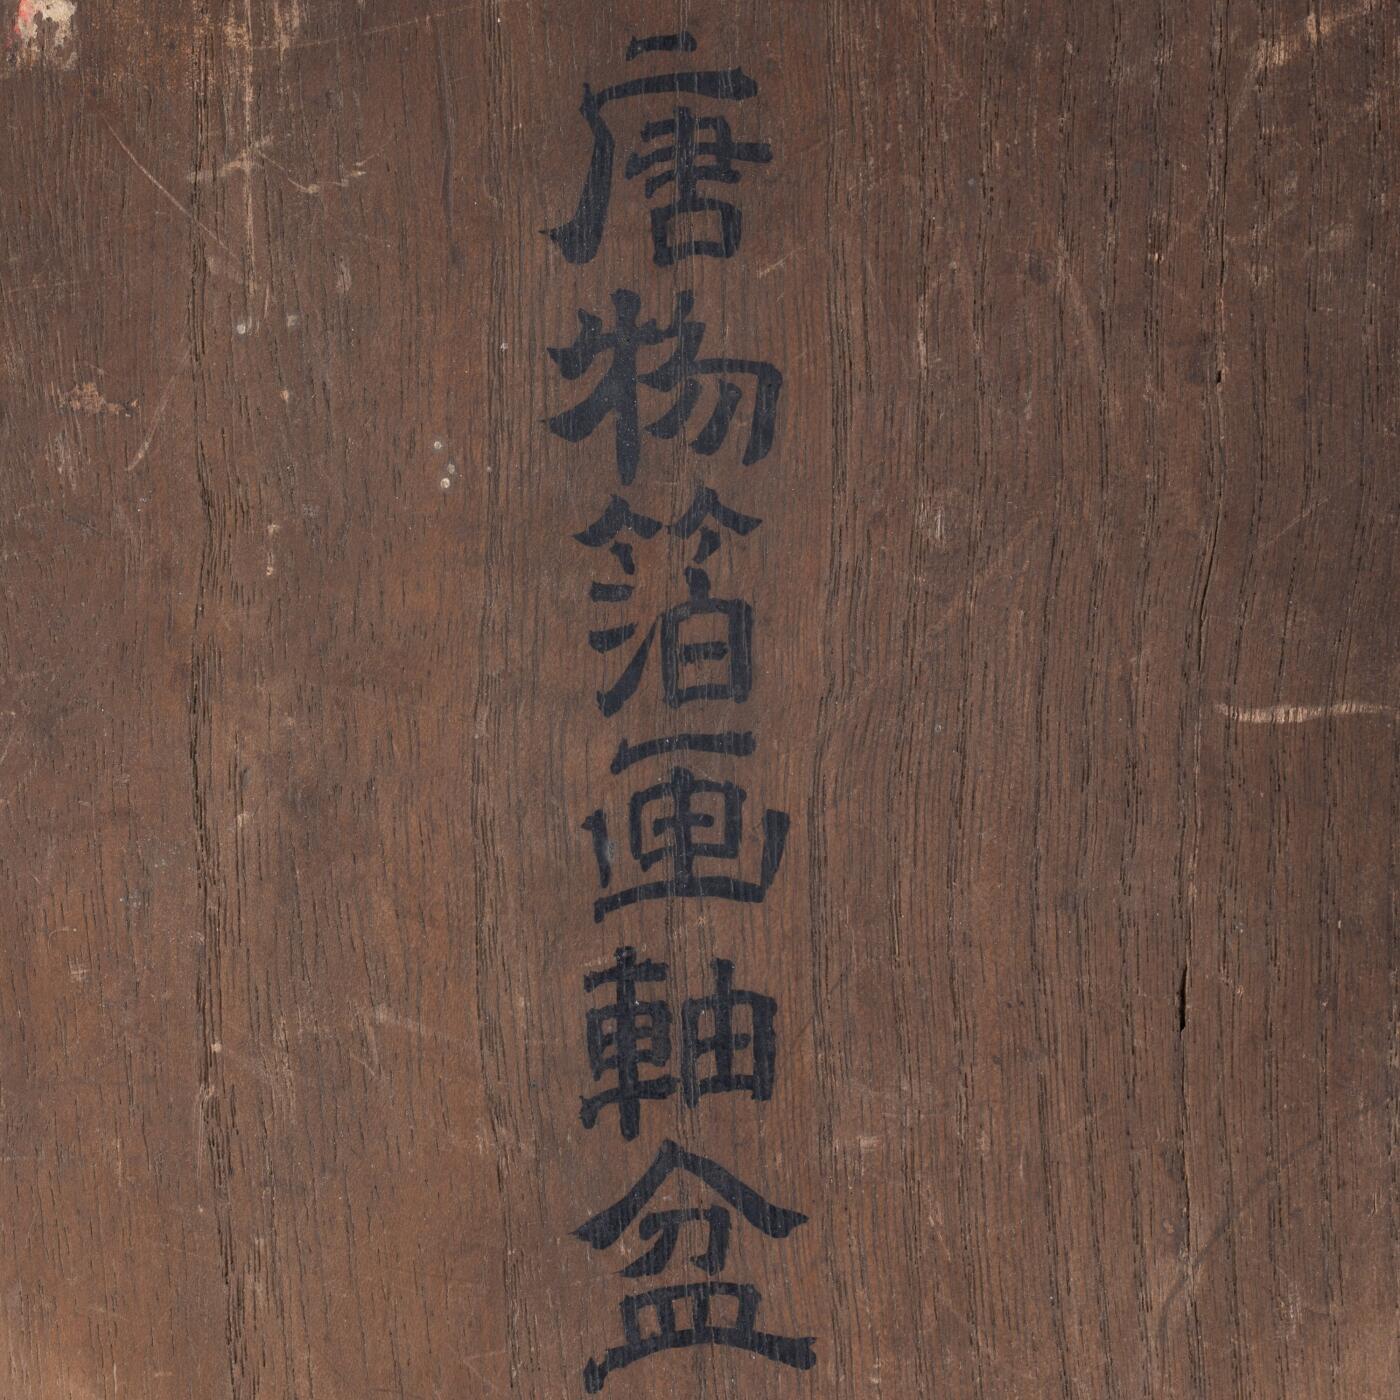 唐物箔画軸盆